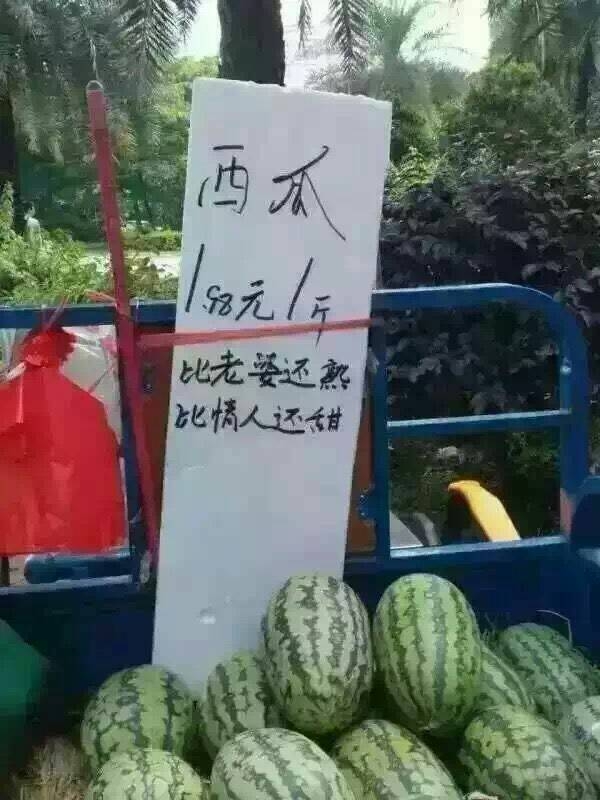 西瓜
1.98元1斤
比老婆还熟
比情人还甜